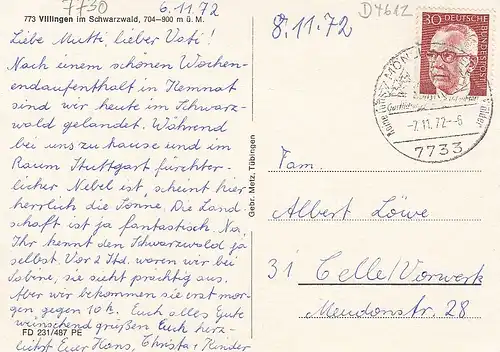 7730
773 Villingen im Schwarzwald, 704–900 m ü. M.
6.11.72
Liebe Mutti, lieber Vati!
Nach einem schönen Wochen-
endaufenthalt in Kemnat
sind wir heute im Schwarz-
wald gelandet. Während
bei uns zuhause und im
Raum Stuttgart fürchter-
licher Nebel ist, scheint hier
herrlich die Sonne. Die Land
schaft ist ja fantastisch. Na,
Ihr kennt den Schwarzwald ja
selbst. Vor 2 Std. waren wir bei
Sabine, sie sieht prächtig aus.
Aber wir bekommen sie erst mor-
gen, gegen 10h. Euch alles Gute
wünschend grüßen Euch herz-
lichst Euer Hans, Christa + Kinder
FD 231/487 PE
Gebr. Metz, Tübingen
8.11.72
D4612
30 DEUTSCHE BUNDESPOST
-7.11.72-6
7733
Fam.
Albert Löwe
31 Celle/Vorwerk
Mendonstr. 28